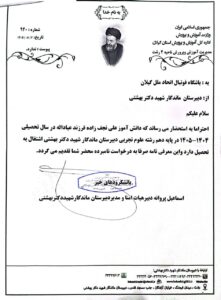 به نام خدا
جمهوری اسلامی ایران
وزارت آموزش و پرورش
اداره کل آموزش و پرورش استان گیلان
مدیریت آموزش و پرورش ناحیه ۲ رشت
شماره: ۲۲۰
تاریخ:
پیوست: ندارد
به : باشگاه فوتبال اتحاد ملل گیلان
از : دبیرستان ماندگار شهید دکتر بهشتی
سلام علیکم
احتراما به استحضار می رساند که دانش آموز علی نجف زاده فرزند عبادالله در سال تحصیلی
۱۴۰۴-۱۴۰۵ در پایه دهم رشته علوم تجربی دبیرستان ماندگار شهید دکتر بهشتی اشتغال به
تحصیل دارد واین معرفی نامه صرفا به درخواست نامبرده محضر شما تقدیم می گردد.
باتشکر ودعای خیر
اسماعیل پروانه دبیرهیات امنا و مدیردبیرستان ماندگارشهیددکتربهشتی